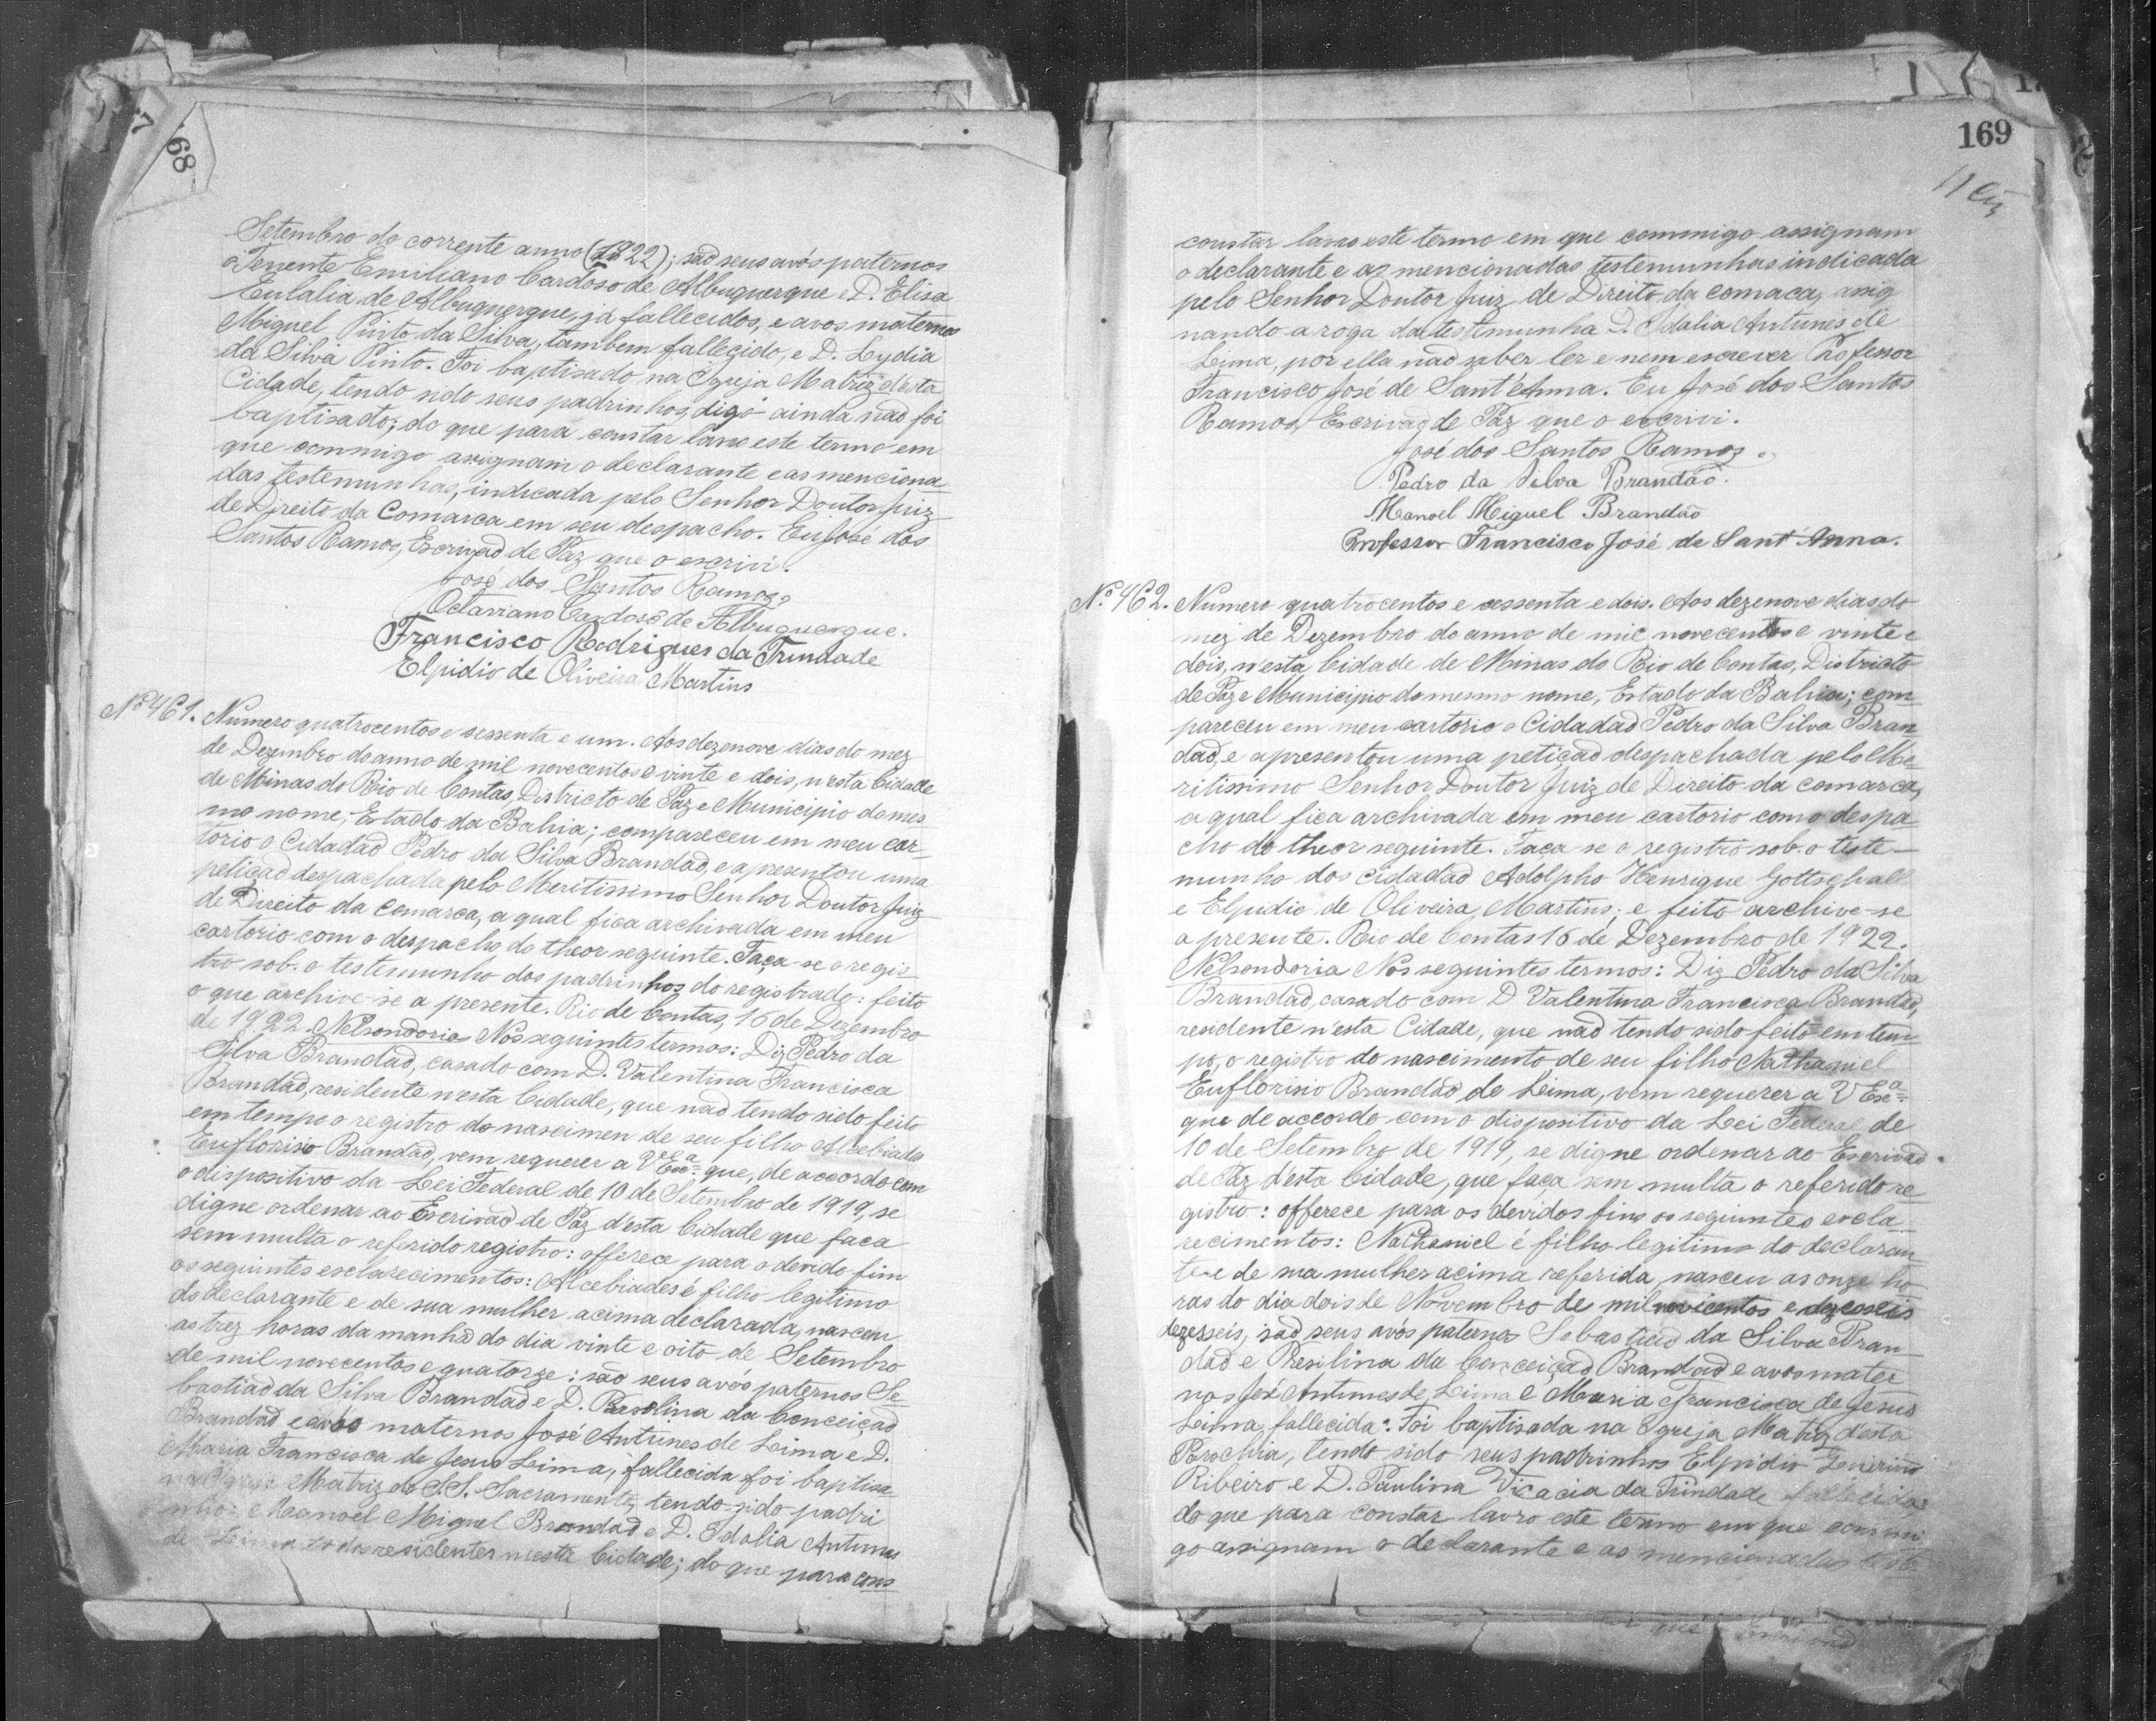 68
Setembro do corrente anno (1922); são seus avós paternos
o Tenente Emiliano Cardoso de Albuquerque e D. Elisa
Eulalia de Albuquerque, já fallecidos, e avos maternos
Miguel Pinto da Silva, tambem fallecido, e D. Lydia
da Silva Pinto. Foi baptisado na Igreja Matriz desta
Cidade, tendo sido seus padrinhos, digo ainda não foi
baptisado; do que para constar lavro este termo em
que commigo assignam o declarante e as menciona
das testemunhas, indicada pelo Senhor Doutor Juiz
de Direito da Comarca em seu despacho. Eu José dos
Santos Ramos, Escrivão de Paz que o escrivi.
José dos Santos Ramos
Octaviano Cardoso de Albuquerque.
Francisco Rodrigues da Trindade
Elpidio de Oliveira Martins
Nº 461. Numero quatrocentos e sessenta e um. Aos dezenove dias do mez
de Dezembro do anno de mil novecentos e vinte e dois, n'esta Cidade
de Minas do Rio de Contas, Districto de Paz e Municipio do mes
mo nome, Estado da Bahia; compareceu em meu car-
torio o Cidadão Pedro da Silva Brandão, e apresentou uma
petição despachada pelo Meritissimo Senhor Doutor Juiz
de Direito da Comarca, a qual fica archivada em meu
cartorio com o despacho do theor seguinte. Faça-se o regis
tro sob. o testemunho dos padrinhos do registrado: feito
o que archive-se a presente. Rio de Contas, 16 de Dezembro
de 1922. Nelsondoria Nos seguintes termos: Diz Pedro da
Silva Brandão, casado com D. Valentina Francisca
Brandão, residente n'esta Cidade, que não tendo sido feito
em tempo o registro do nascimen de seu filho Alcebiades
Euflorisio Brandão, vem requerer a V Exc.ª que, de accordo com
o dispositivo da Lei Federal de 10 de Setembro de 1919, se
digne ordenar ao Escrivão de Paz d'esta Cidade que faca
sem multa o referido registro: offerece para o devido fim
os seguintes esclarecimentos: Alcebiades é filho legitimo
do declarante e de sua mulher acima declarada, nasceu
as trez horas da manhã do dia vinte e oito de Setembro
de mil novecentos e quatorze: são seus avós paternos Se
bastião da Silva Brandão e D. da Conceição
Brandão e avós maternos José Antunes de Lima e D.
Maria Francisca de Jesus Lima, fallecida foi baptisa
na Igreja Matriz do S.S. Sacramento, tendo sido padri
nhos Manoel Miguel Brandão e D. Idalia Antunes
de Lima todos residentes n'esta Cidade; do que para cons
169
constar lavro este termo em que commigo assignam
o declarante e as mencionadas testemunhas indicada
pelo Senhor Doutor Juiz de Direito da comaca, assig
nando a roga da testemunha D. Idalia Antunes de
Lima, por ella não saber ler e nem escrever Professor
Francisco José de Sant'Anna. Eu José dos Santos
Ramos, Escrivão de Paz que o escrivi.
José dos Santos Ramos.
Pedro da Silva Brandão.
Manoel Miguel Brandão
Professor Francisco José de Sant'Anna.
Nº 462. Numero quatrocentos e sessenta e dois. Aos dezenove dias do
mez de Dezembro do anno de mil novecentos e vinte e
dois, n'esta Cidade de Minas do Rio de Contas, Districto
de Paz e Municipio do mesmo nome, Estado da Bahia; com
pareceu em meu cartorio o Cidadão Pedro da Silva Bran
dão, e apresentou uma petição despachada pelo Me
ritissimo Senhor Doutor Juiz de Direito da comarca,
a qual fica archivada em meu cartorio com o despa
cho do theor seguinte. Faça se o registro sob. o teste-
munho dos cidadão Adolpho Henrique Gottschall
e Elpidio de Oliveira Martins; e feito archive-se
a presente. Rio de Contas 16 de Dezembro de 1922.
Nelsondoria Nos seguintes termos: Diz Pedro da Silva
Brandão, casado com D Valentina Francisca Brandão,
residente n'esta Cidade, que não tendo sido feito em tem
po, o registro do nascimento de seu filho Nathaniel
Euflorisio Brandão de Lima, vem requerer a V Exc.ª
que de accordo com o dispositivo da Lei Federal de
10 de Setembro de 1919, se digne ordenar ao Escrivão
de Paz d'esta Cidade, que faça sem multa o referido re
gistro: offerece para os devidos fins os seguintes escla
recimentos: Nathaniel é filho legitimo do declaran
te e de sua mulher acima referida, nasceu as onze ho
ras do dia dois de Novembro de mil novecentos e dezeseis
dezesseis, são seus avós paternos Sebastião da Silva Bran
dão e Presilina da Conceição Brandão e avos mater
nos José Antunes de Lima e Maria Francisca de Jesus
Lima, fallecida. Foi baptisada na Igreja Matriz desta
Parochia, tendo sido seus padrinhos Elpidio
Ribeiro e D. Paulina da Trindade fallecida
do que para constar lavro este termo em que commi
go assignam o declarante e as mencionadas teste